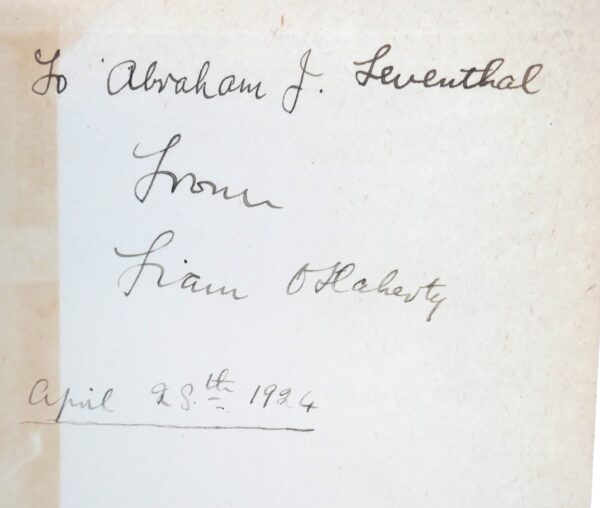 To Abraham J. Leventhal
From
Liam O'Flaherty
April 28th 1924